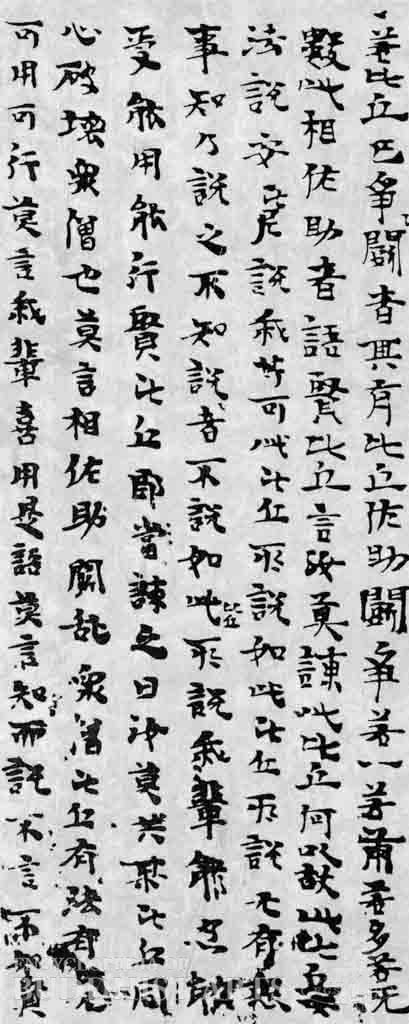 若比丘已爭鬪者其有比丘佐助鬪爭若一若兩若多若无
數此相佐助者語賢比丘言汝莫諫此比丘何以故此比丘安
法說安尼說我等可此比丘所說如此比丘所說无有愆
事知乃說之不知說者不說如此比丘所說我輩能忍能
受能用能行賢比丘即當諫之曰汝莫共某比丘同
心破壞眾僧也莫言相佐助鬪亂眾僧比丘有法有尼
可用可行莫言我輩喜用是語莫言知而說不言不